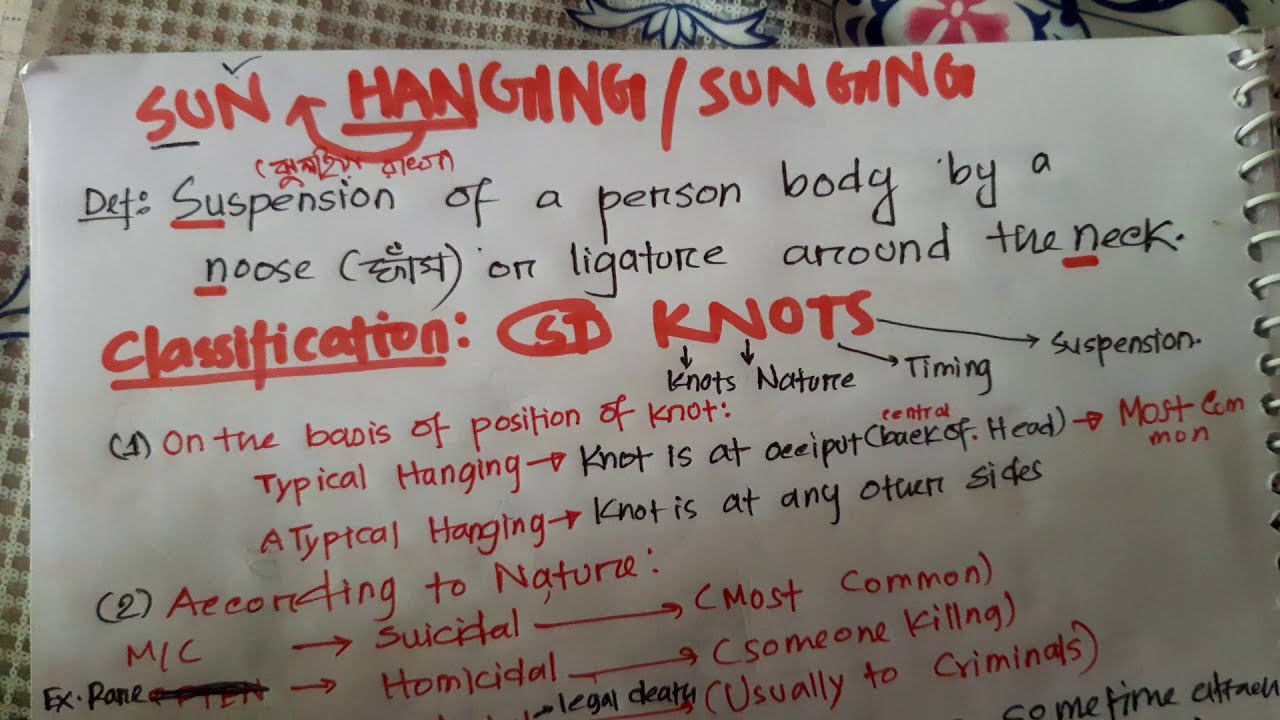 SUN HANGING/SUNGING
Def: Suspension of a person body by a
noose (ফাঁস) or ligature around the neck.
Classification: SD KNOTS
Knots Nature Timing Suspension.
(1) On the basis of position of knot:
Typical Hanging → Knot is at occiput (central back of Head) → Most Common
ATypical Hanging → Knot is at any other sides
(2) According to Nature:
M/C → Suicidal → (Most Common)
Ex. Rare → Homicidal → (someone killng)
legal death (Usually to Criminals)
sometime attach